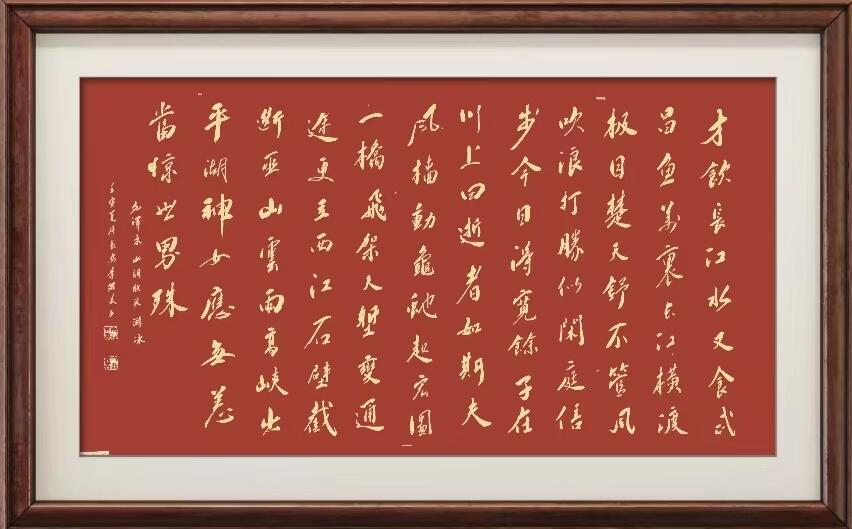 才飲長江水又食武
昌魚萬裏長江橫渡
极目楚天舒不管风
吹浪打勝似閑庭信
步今日得寬餘子在
川上曰逝者如斯夫
风檣動龜蛇起宏圖
一橋飛架天塹變通
途更立西江石壁截
斷巫山雲雨高峽出
平湖神女應無恙
當惊世界殊
毛澤東水調歌頭游泳
壬寅夏月長安李